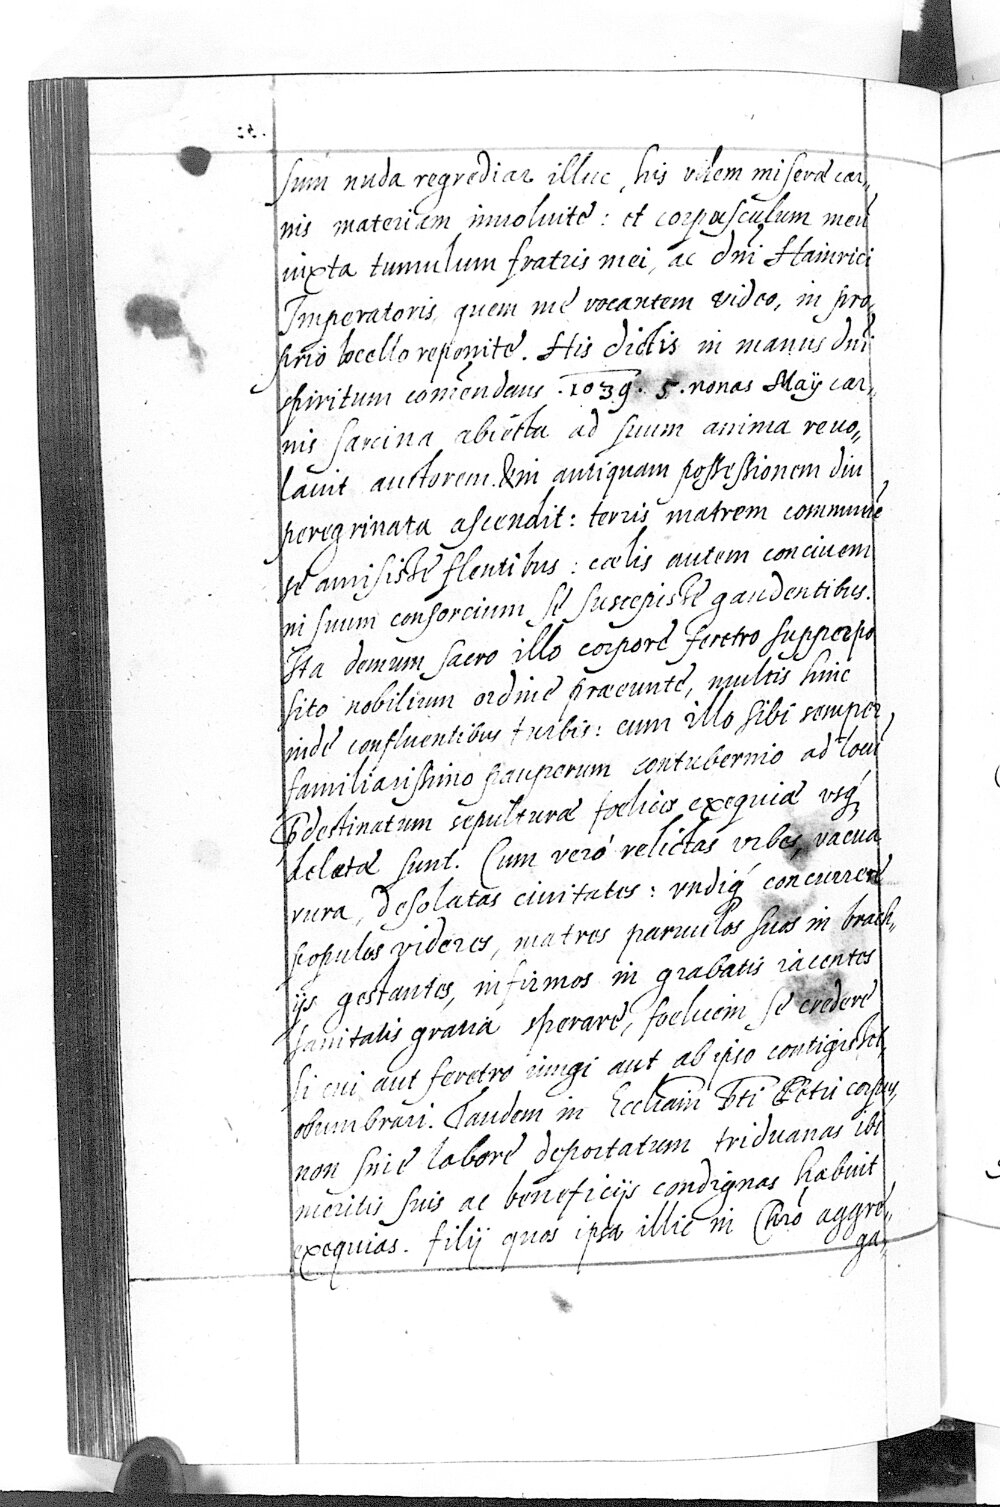 sum nuda regrediar illuc, his vilem miseræ car„
nis materiam inuoluite: et corpusculum meū
iuxta tumulum fratris mei, ac dnī Hainrici
Imperatoris, quem me vocantem video, in pro„
prio locello reponite. His dictis in manus dnī
spiritum comēndans .1039. 5. nonas Maÿ car„
nis sarcina abiecta ad suum anima reuo„
lauit auctorem. & in antiquam possessionem diu
peregrinata ascendit: terris matrem communē
se amisisse flentibus: cœlis autem conciuem
in suum consorcium se suscepisse gaudentibus.
Ita demum sacro illo corpore feretro supperpo
sito nobilium ordine præeunte, multis hinc
inde confluentibus turbis: cum illo sibi semper
familiarissimo pauperum contubernio ad locū
p̄destinatum sepulturæ fœlices exequiæ vsq́
delatæ sunt. Cum veró relictas vrbes, vacua
rura, desolatas ciuitates: vndiq́ concurrere
populos videres, matres paruulos suos in brach„
ijs gestantes, infirmos in grabatis iacentes
sanitatis gratia sperare, fœlicem se credere
si cui aut feretro iungi aut ab ipso contigisset,
obumbrari. Tandem in Eccliam bti Petri corpus,
non sine labore deportatum triduanas ibi
meritis suis ac beneficijs condignas habuit
exequias. filij quos ipsa illic in Chrō aggre„
ga„